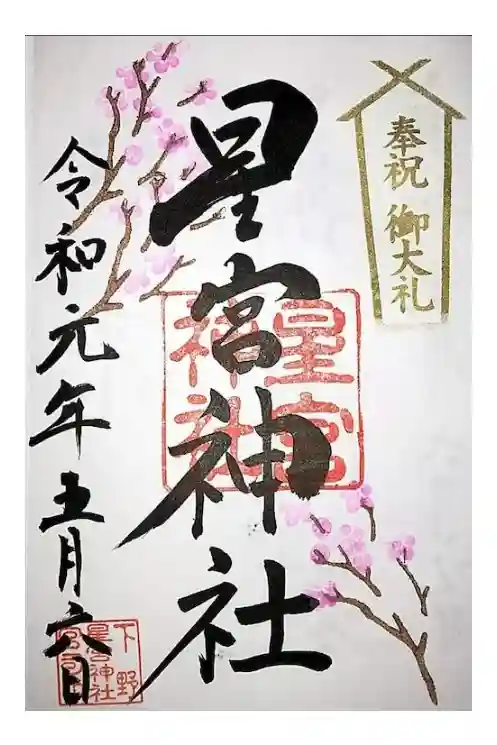 奉祝 御大礼
星宮神社
星宮
神社
令和元年五月六日
下野
星宮神社
宮司